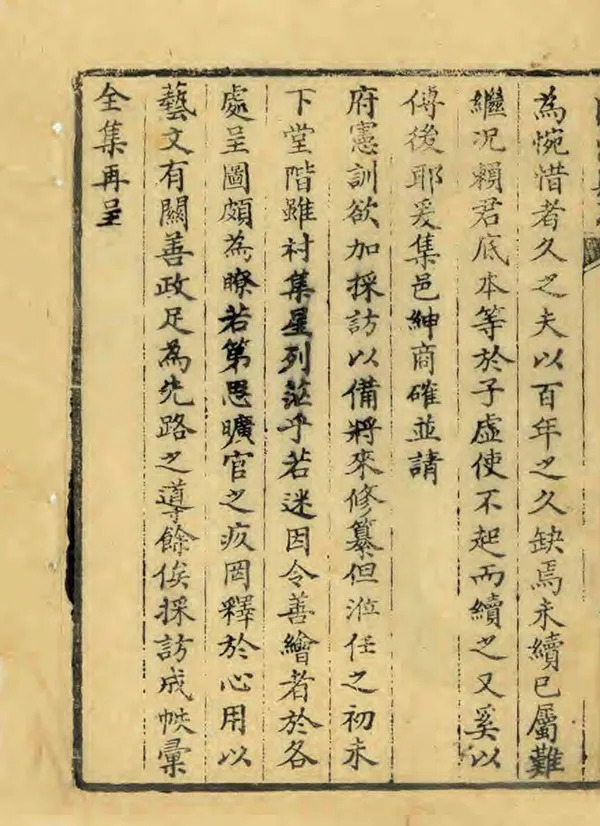 為惋惜者久之夫以百年之久缺焉未續已屬難
繼況賴君底本等於子虛使不起而續之又奚以
傳後耶爰集邑紳商確並請
府憲訓欲加採訪以備將來修纂但涖任之初未
下堂階雖村集星列茫乎若迷因令善繪者於各
處呈圖頗為瞭若第思曠官之疚罔釋於心用以
藝文有關善政足為先路之導餘俟採訪成帙彙
全集再呈